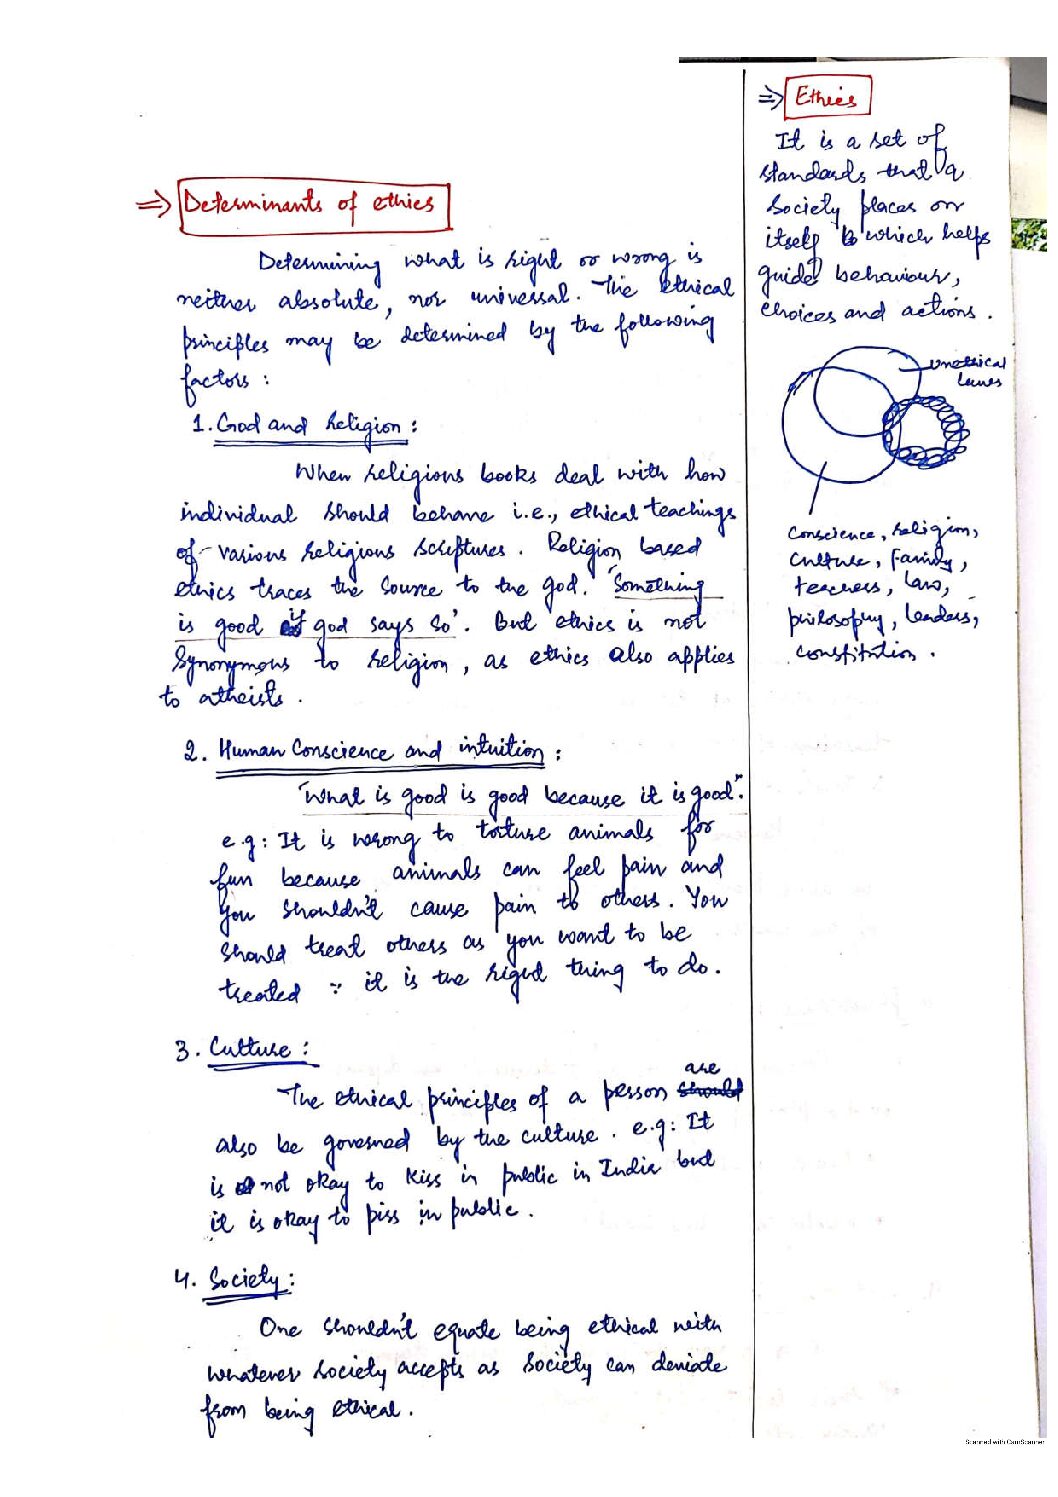 ⇒ Determinants of ethics
Determining what is right or wrong is
neither absolute, nor universal. The ethical
principles may be determined by the following
factors :
1. God and Religion :
When religious books deal with how
individual should behave i.e., ethical teachings
of various religious scriptures. Religion based
ethics traces the source to the god. 'Something
is good if god says so'. But ethics is not
synonymous to religion, as ethics also applies
to atheists.
2. Human Conscience and intuition :
"What is good is good because it is good".
e.g: It is wrong to torture animals for
fun because animals can feel pain and
you shouldn't cause pain to others. You
should treat others as you want to be
treated ∵ it is the right thing to do.
3. Culture :
are
The ethical principles of a person should
also be governed by the culture. e.g: It
is not okay to kiss in public in India but
it is okay to piss in public.
4. Society :
One shouldn't equate being ethical with
whatever society accepts as society can deviate
from being ethical.
⇒ Ethics
It is a set of
standards that a
society places on
itself which helps
guide behaviour,
choices and actions.
unethical
laws
Conscience, religion,
culture, family,
teachers, law,
philosophy, leaders,
constitution.
Scanned with CamScanner